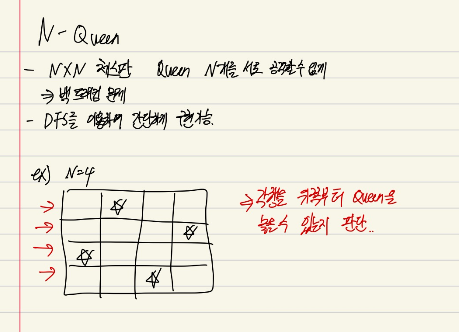 N - Queen
- N×N 체스판 Queen N개를 서로 공격할 수 없게
⇒ 백트래킹 문제
- DFS를 이용하여 간단하게 구현가능.
ex) N=4
⇒ 각행을 위쪽부터 Queen을
놓을 수 있는지 판단..